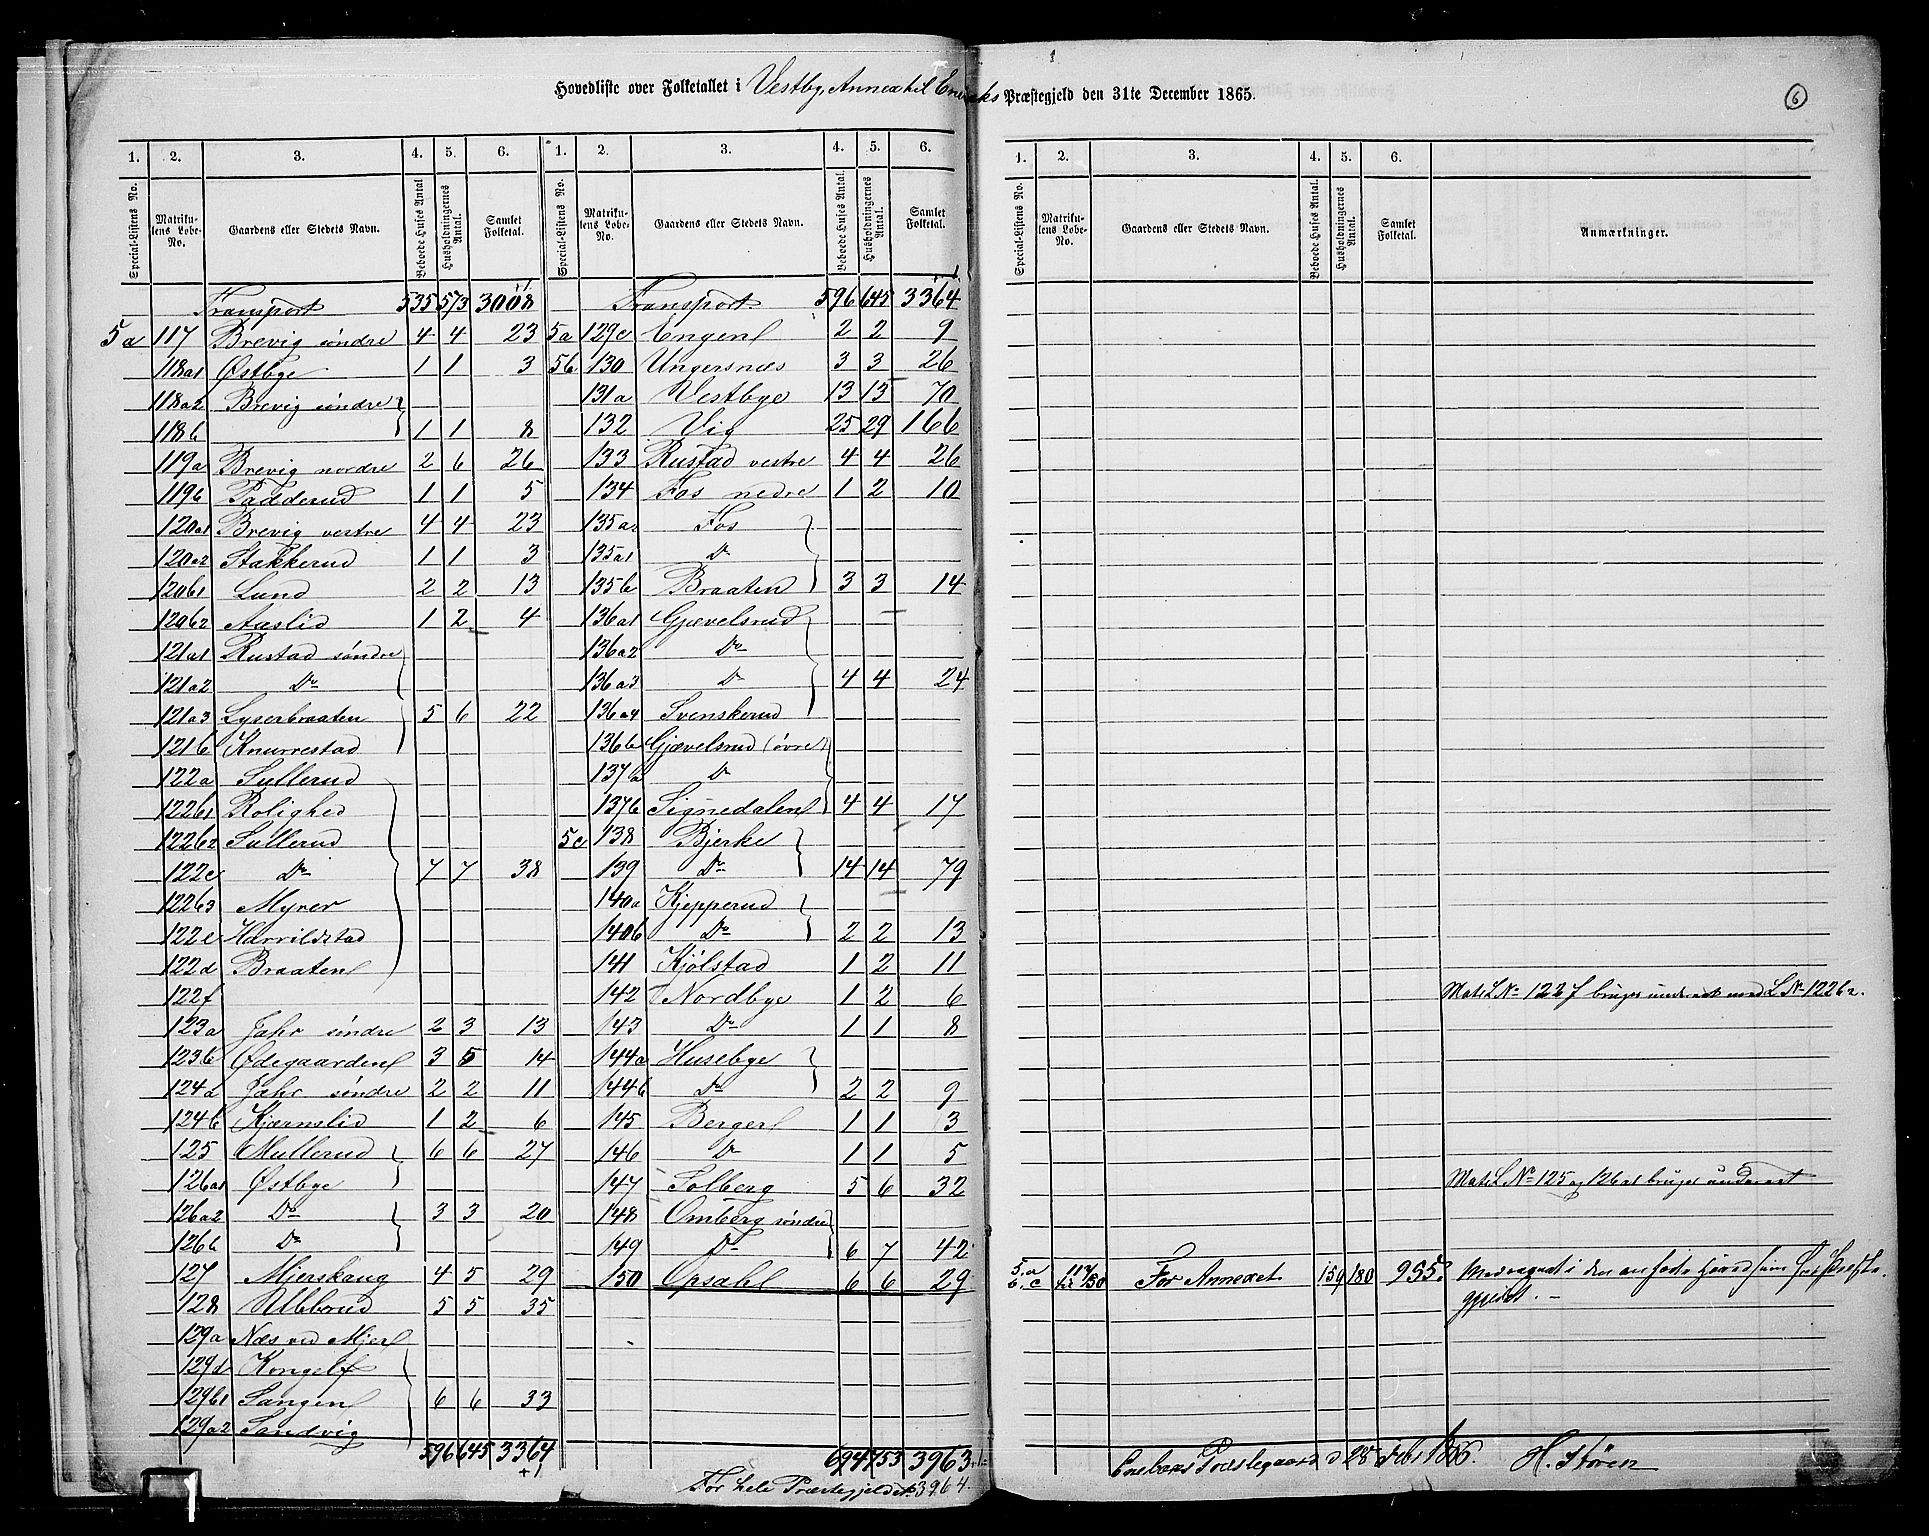 Hovedliste over Folketallet i Vestby, Annex til Enebaks Præstegjeld den 31te December 1865.
6
1. 2. 3. 4. 5. 6. 1. 2. 3. 4. 5. 6.
Special-Listens No. Matrikulens Løbe-No. Gaardens eller Stedets Navn. Beboede Huses Antal Husholdningernes Antal. Samlet Folketal. Special-Listens No. Matrikulens Løbe-No. Gaardens eller Stedets Navn. Beboede Huses Antal. Husholdningernes Antal. Samlet Folketal.
Transport 535 573 3008
5a 117 Brevig søndre 4 4 23
118a1 Østbye 1 1 3
118a2 Brevig søndre
118b 1 1 8
119a Brevig nordre 2 6 26
119b Padderud 1 1 5
120a1 Brevig vestre 4 4 23
120a2 Stakkerud 1 1 3
120b1 Lund 2 2 13
120b2 Aaslid 1 2 4
121a1 Rustad søndre
121a2 Do
121a3 Lyserbraaten 5 6 22
121b Knurrestad
122a Sullerud
122b1 Rolighed
122b2 Sullerud
122c Do 7 7 38
122b3 Myrer
122e Harrildstad
122d Braaten
122f
123a Jahr søndre 2 3 13
123b Ødegaarden 3 5 14
124a Jahr søndre 2 2 11
124b Kjærnslid 1 2 6
125 Mullerud 6 6 27
126a1 Østbye
126a2 Do 3 3 20
126b Do
127 Mjerskaug 4 5 29
128 Ubberud 5 5 35
129a Næs ved Mjer
129d Kongelf
129b1 Tangen 6 6 33
129a2 Sandvig
596 645 3364
+1
Transport 596 645 3364
5a 129c Engen 2 2 9
5b 130 Ungersnæs 3 3 26
131a Vestbye 13 15 70
132 Vig 25 29 166
133 Rustad vestre 4 4 26
134 Fos nedre 1 2 10
135a2 Fos
135a1 Do
135b Braaten 3 3 14
136a1 Gjævelsrud
136a2 Do
136a3 Do 4 4 24
136a4 Svenskerud
136b Gjævelsrud (øvre
137a Do
137b Signedalen 4 4 17
5c 138 Bjerke
139 Do 14 14 79
140a Kjepperud
140b Do 2 2 13
141 Kjølstad 1 2 11
142 Nordbye 1 2 6
143 Do 1 1 8
144a Husebye
144b Do 2 2 9
145 Berger 1 1 3
146 Do 1 1 5
147 Tolberg 5 6 32
148 Omberg søndre
149 Do 6 7 42
150 Opsahl 6 6 29
694 753 3963
For hele Præstegjeldet 3964.
1. 2. 3. 4. 5. 6.
Special-Listens No. Matrikulens Løbe-No. Gaardens eller Stedets Navn. Beboede Huses Antal. Husholdningernes Antal. Samlet Folketal. Anmærkninger.
Mat. L No 122f bruges under et med L No 122b2.
Mat. L No 125 og 126a1 bruges under et
5 a b. c 117 til 150 For Annexet 159 180 955 Medregnet i den anførte Hovedsum for Præstegjeldet. -
Enebaks Præstegaard d 28 Febr 1866. H. Støren